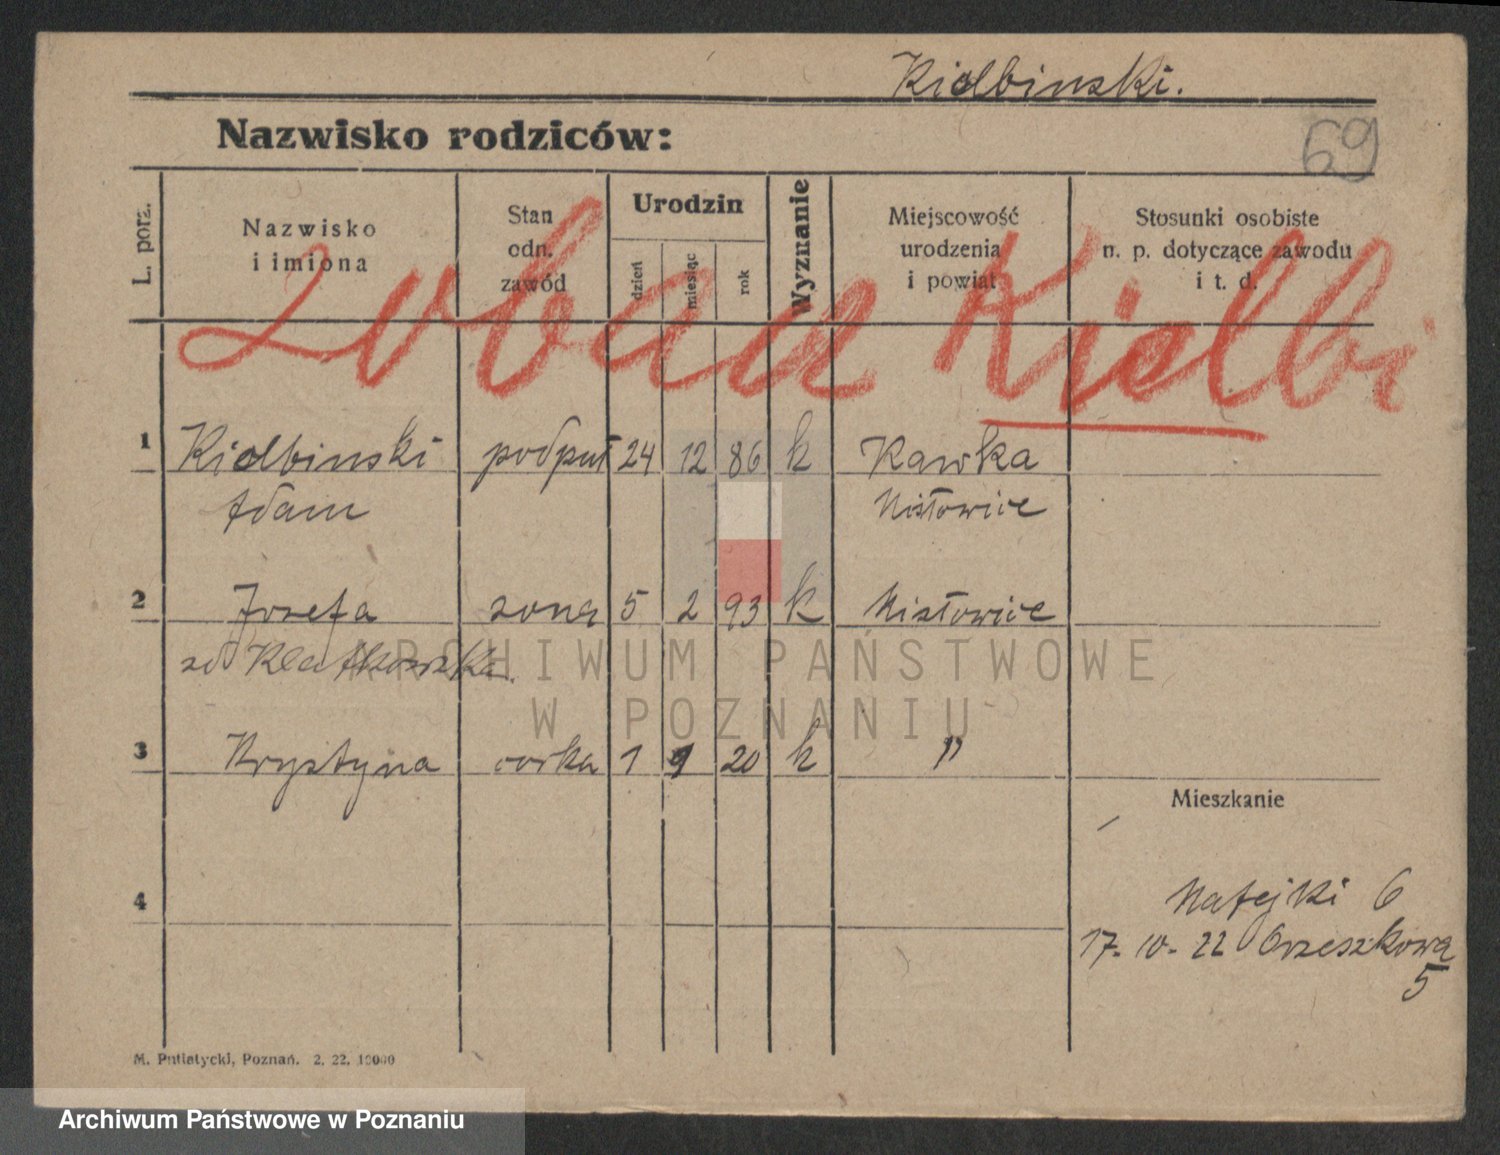 Kiolbinski.
Nazwisko rodziców:
69
L. porz.
Nazwisko
i imiona
Stan
odn.
zawód
Urodzin
dzień
miesiąc
rok
Wyznanie
Miejscowość
urodzenia
i powiat
Stosunki osobiste
n. p. dotyczące zawodu
i t. d.
Kiolbi
1 Kiolbinski podpuł 24 12 86 k Kawka
Adam Misłowice
2 Jozefa zona 5 2 93 k Misłowice
zd Klatkowska.
3 Krystyna corka 1 9 20 k "
Mieszkanie
4
Matejki 6
17-10-22 Orzeszkowa
5
M. Putiatycki, Poznań. 2. 22. 10000
ARCHIWUM PAŃSTWOWE
W POZNANIU
Archiwum Państwowe w Poznaniu